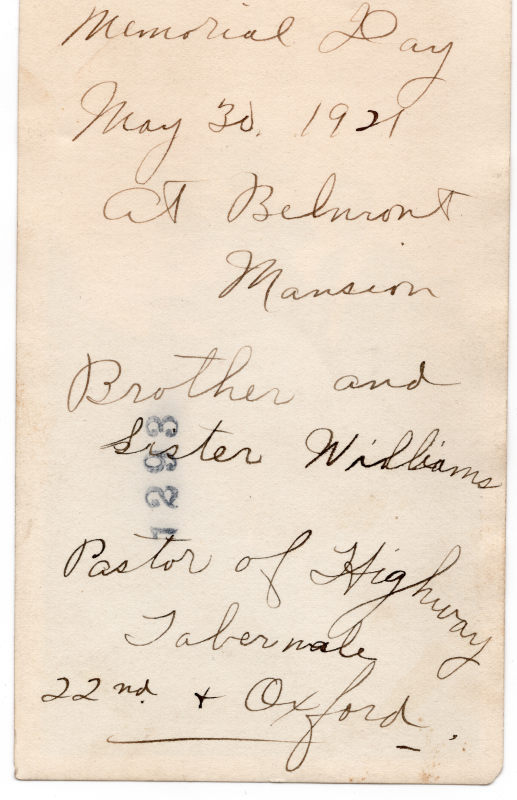 Memorial Day
May 30, 1921
At Belmont
Mansion
Brother and
Sister Williams
1293
Pastor of Highway
Tabernale
22nd. + Oxford.